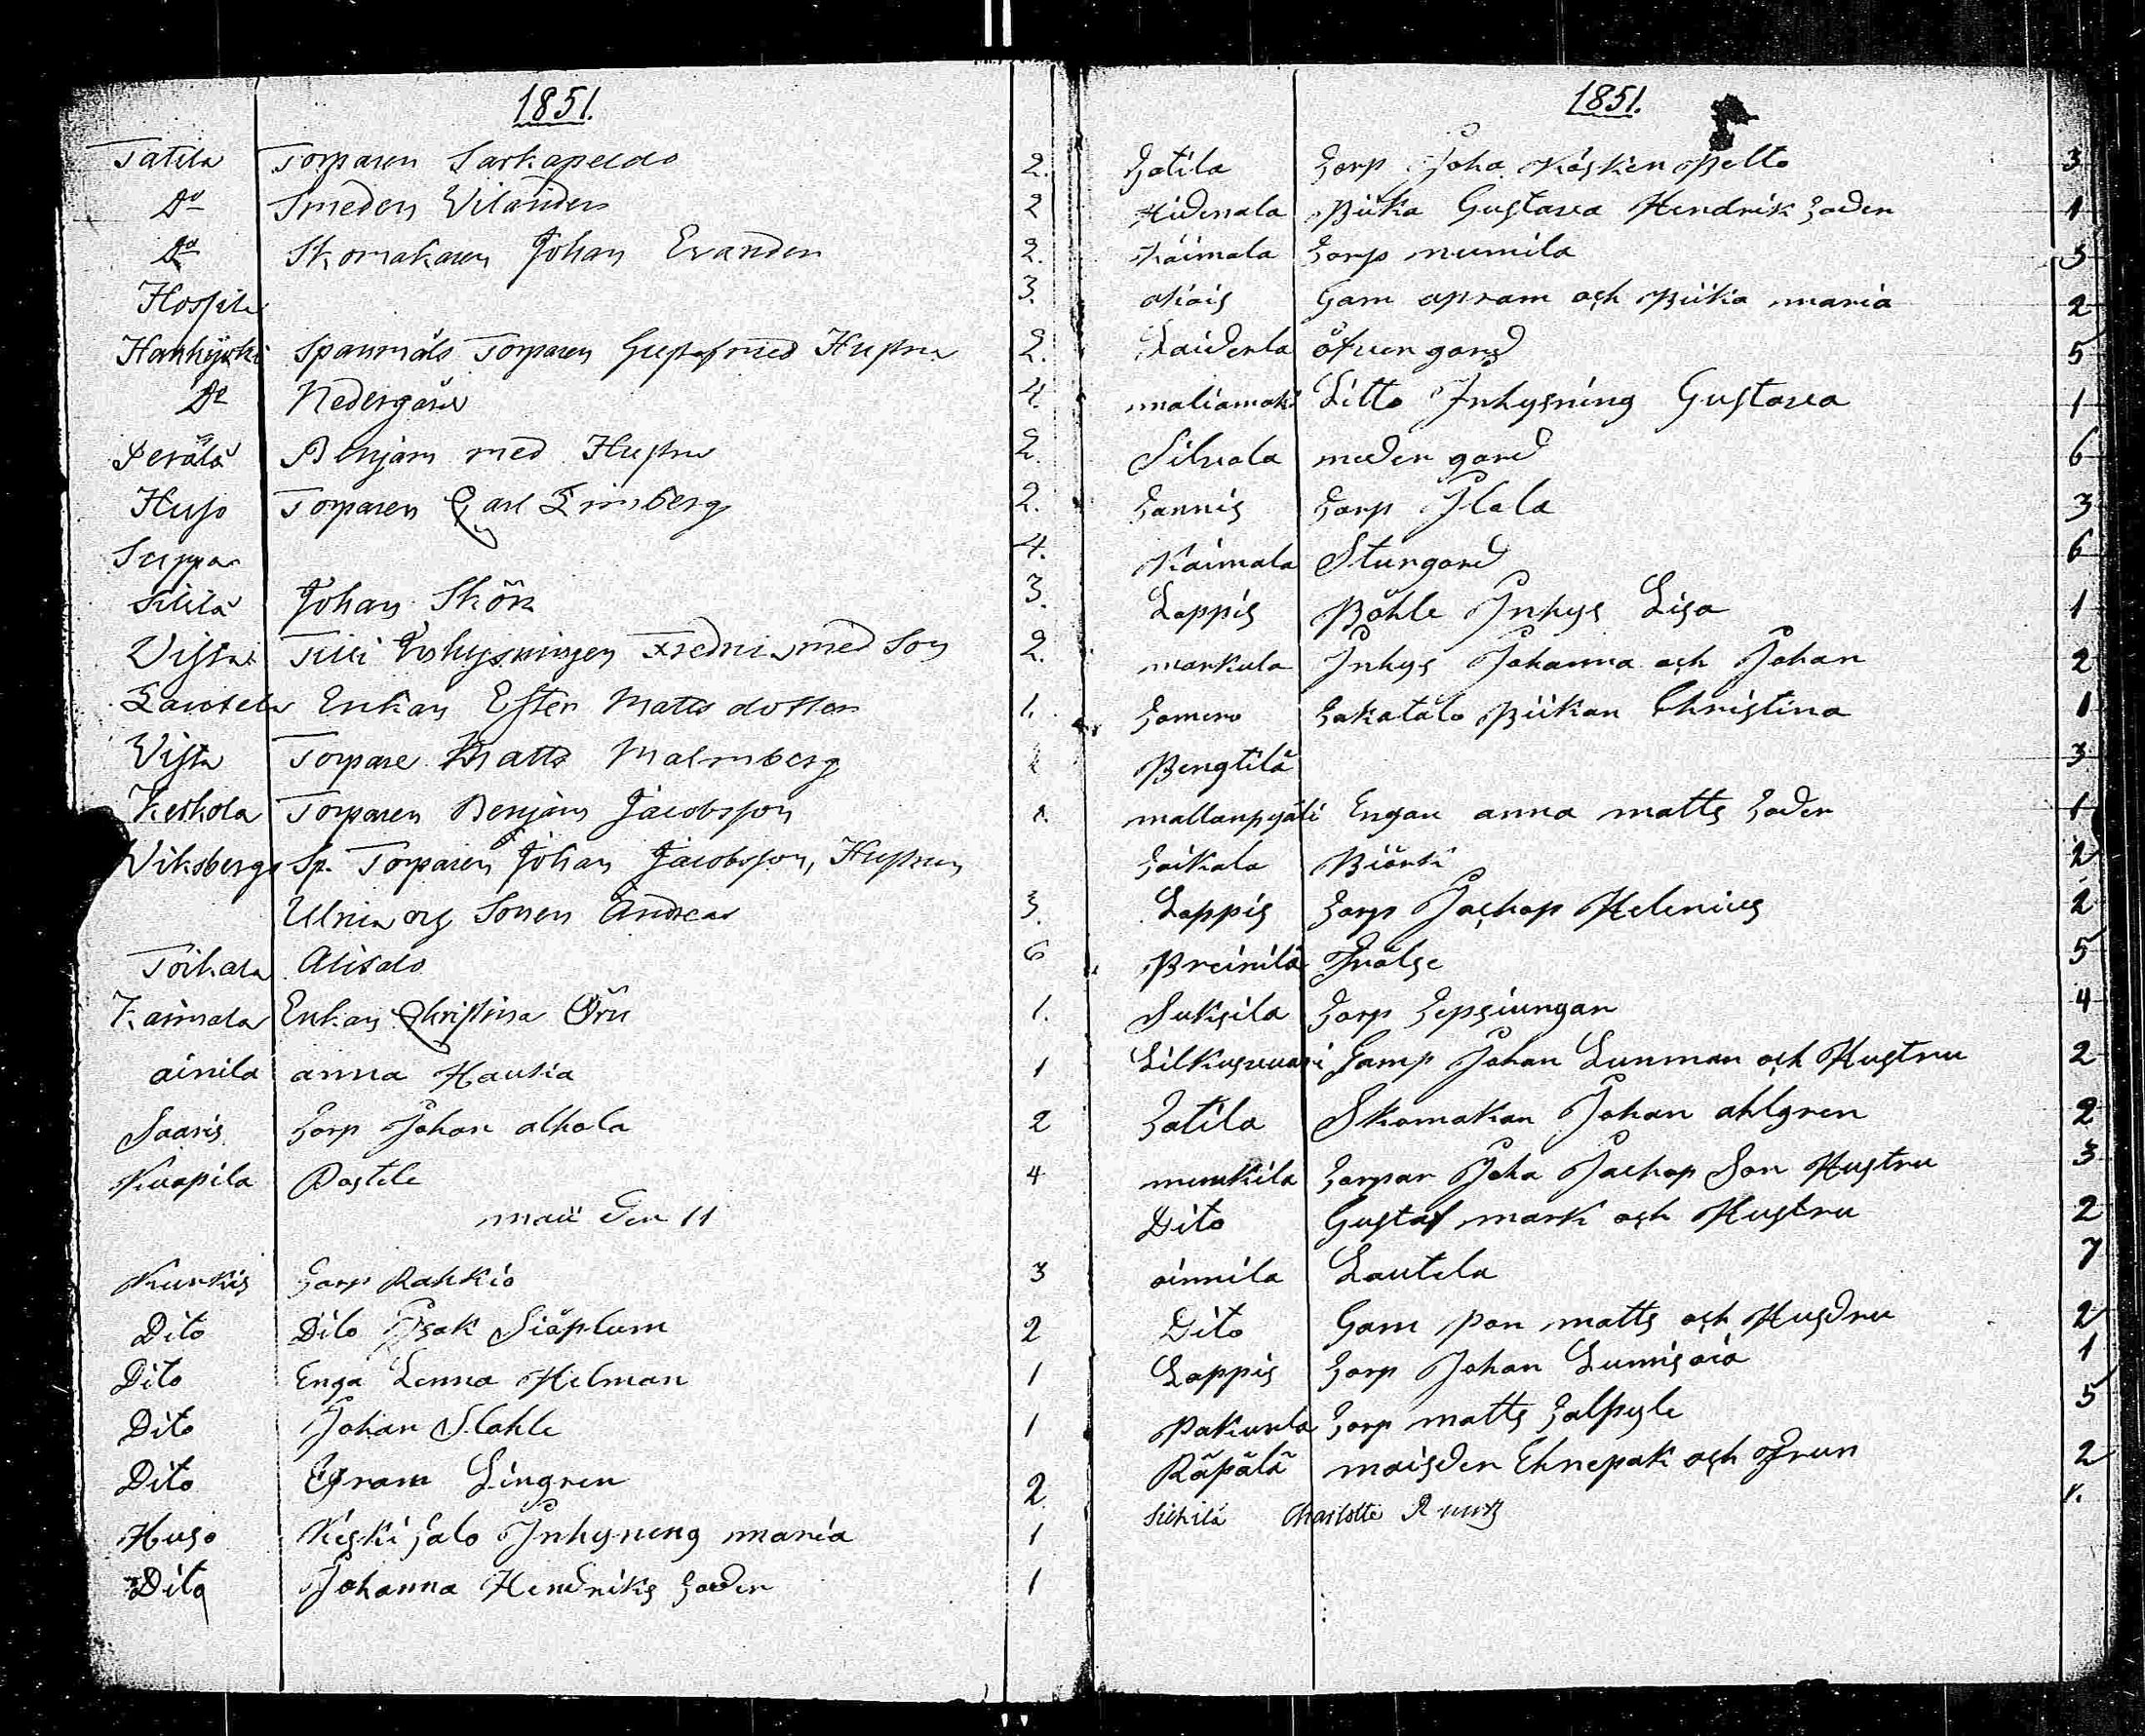 1851.
Tatila Torparen Sarkapeldo 2.
Do Smeden Vilander 2
Do Skomakaren Johan Evander 2.
Hossila 3.
Hanhijoki Spanmåls Torparen Gustaf med Hustru 2.
Do Nedergård 4.
Perälä Benjam med Hustru 2.
Huso Torparen Carl Limberg 2.
Seppa 4.
Sikilä Johan Skön 3.
Vista Tilli Inhysningen Fredric med Son 2.
Lautela Enkan Ester Matts dotter 1.
Vista Torpare Matts Malmberg
Keskola Torparen Benjam Jacobsson 1.
Viksbergs Sp. Torparen Johan Jacobsson, Hustrun
Ulrica og Sonen Andreas 3.
Toikala Alitalo 6
Kaimala Enkan Christina Örn 1.
ainila anna Haukia 1
Saaris Torp Johan alhola 2
Knapila Rostele 4
maii den 11
Kurkis Torp Rahkio 3
Dito Dito Isak Siöplum 2
Dito Enga Lenna Helman 1
Dito Johan Slahle 1
Dito Efram Lingren 2
Huso Keski Salo Inhyneng maria 1
Dito Johanna Hendriks Toder 1
1851.
Tatila Torp Joha Kosken Pelto 3
Hidenala Piika Gustava Hendrik Toder 1
Kaimala Torp numila 3
Kois Gam apram och Piika maria 2
Laiderla öfuer gord 5
maliamaki Litto Inhysning Gustava 1
Silvola neder gord 6
Tannis Torp Ilala 3
Kaimala Sturgord 6
Loppis Böhle Inhys Lisa 1
markula Inhys Johanna och Johan 2
Tomero Takatalo Piikan Christina 1
Pengtilä 3
mallanpyäli Engan anna matts Toder 1
Toikala Biörk 2
Loppis Torp Jachop Helenius 2
Preinilä Frälse 5
Suksila Torp Tepsiungar 4
Lilkusuuari Tamp Johan Lunman och Hustru 2
Tatila Skomakan Johan ahlgren 2
munkila Torpar Joha Jachop Son Hustru 3
Dito Gustaf mark och Hustru 2
oinnila Lautela 7
Dito Gam pon matts och Husdru 2
Loppis Torp Johan Lumisoia 1
Pakurla Torp matts Talpyle 5
Räpälä maisder Ehnepak och Frun 2
Sikilä Charlotte 1.